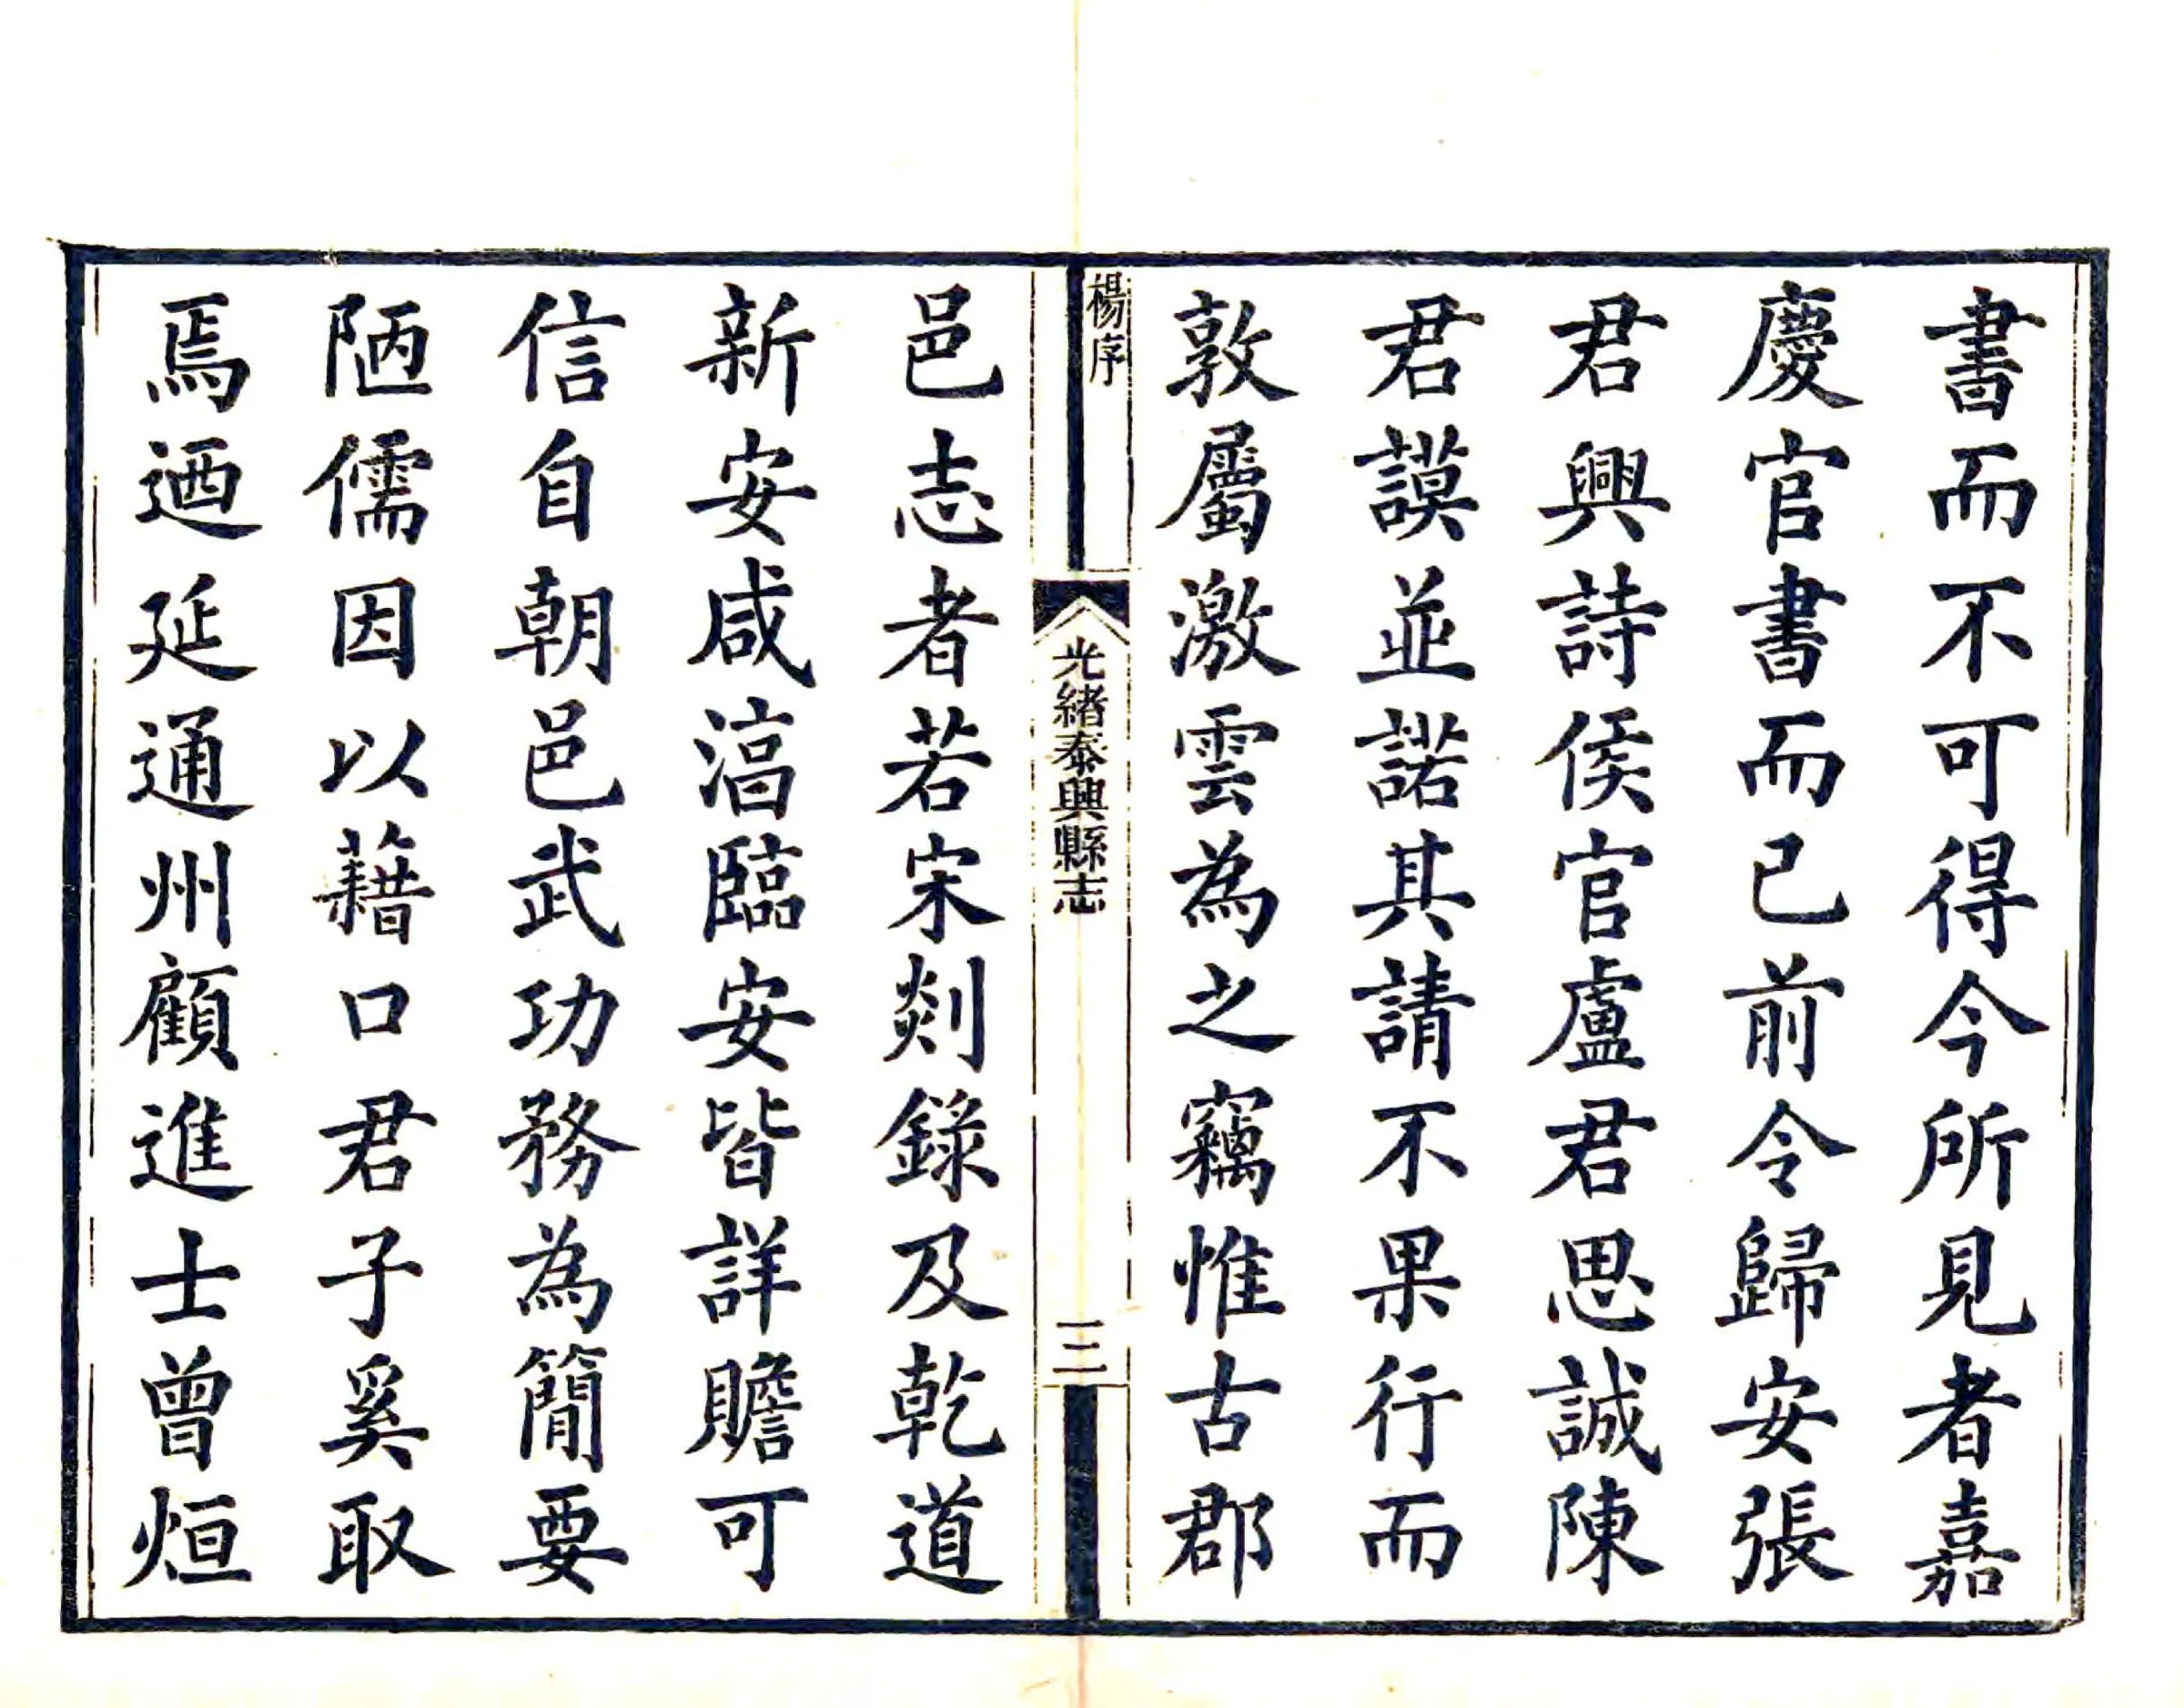 書而不可得今所見者嘉
慶官書而已前令歸安張
君興詩侯官盧君思誠陳
君謨並諾其請不果行而
敦屬激雲為之竊惟古郡
楊序
光緒泰興縣志
三
邑志者若宋剡錄及乾道
新安咸湻臨安皆詳贍可
信自朝邑武功務為簡要
陋儒因以藉口君子奚取
焉迺延通州顧進士曾烜